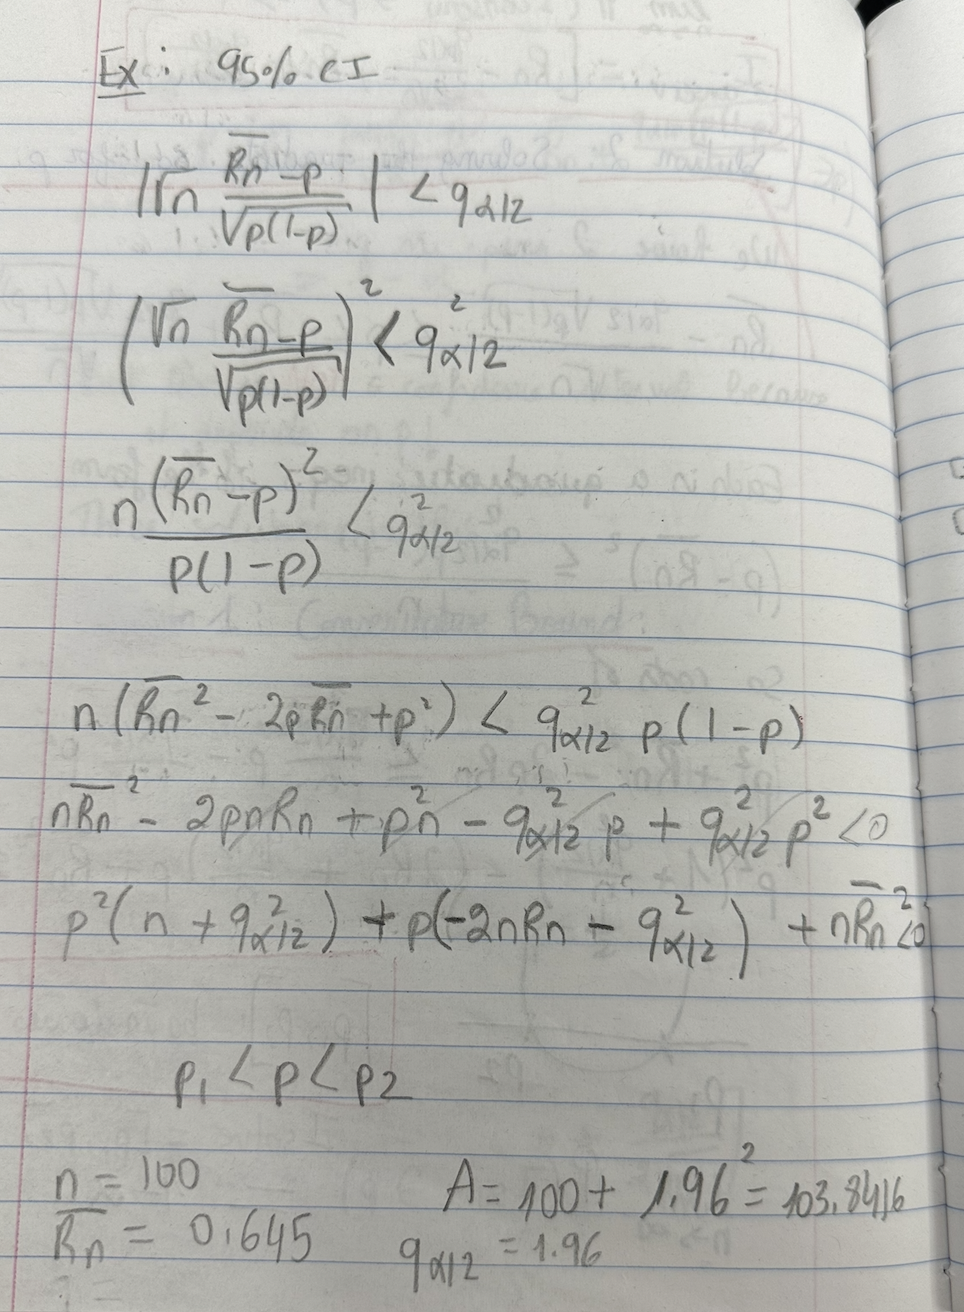 Ex: 95% CI
|√n (R̄n - p)/√p(1-p) | < qα/2
(√n (R̄n - p)/√p(1-p))² < q²α/2
n(R̄n - p)²/p(1-p) < q²α/2
n(R̄n² - 2pR̄n + p²) < q²α/2 p(1-p)
nR̄n² - 2pnRn + p²n - q²α/2 p + q²α/2 p² < 0
p²(n + q²α/2) + p(-2nRn - q²α/2) + nR̄n² < 0
p1 < p < p2
n = 100
A = 100 + 1.96² = 103.8416
R̄n = 0.645
qα/2 = 1.96